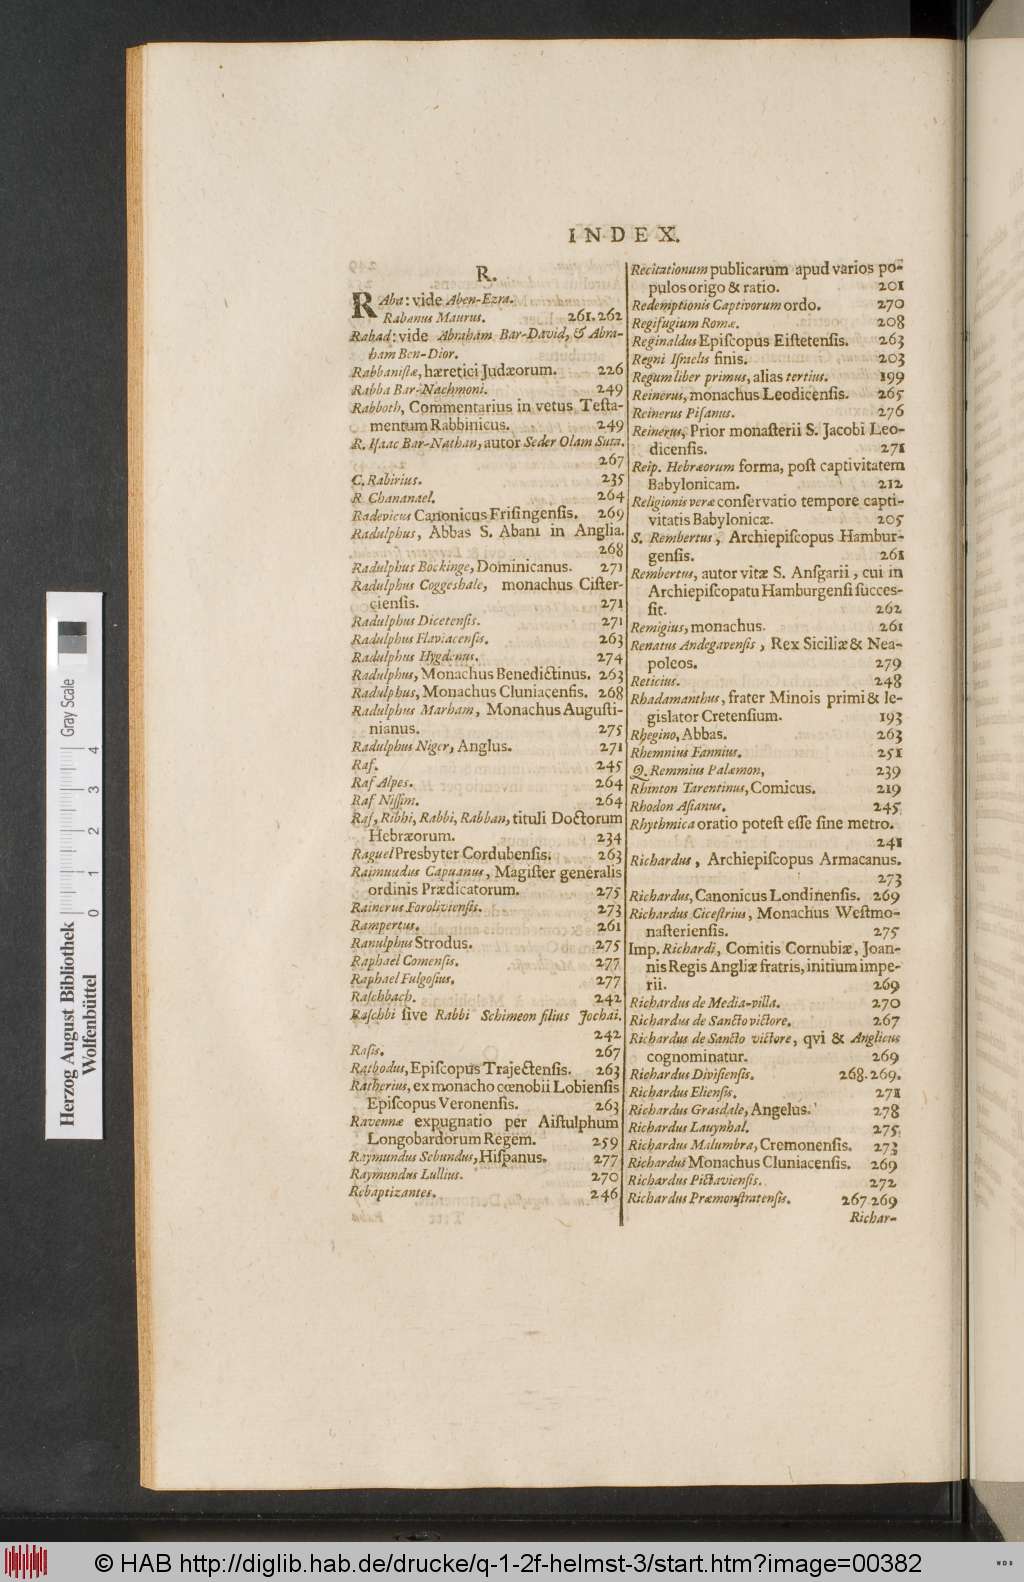 INDEX.
R.
RAba: vide Aben-Ezra.
Rabanus Maurus. 261.262
Rabad: vide Abraham Bar-David, & Abra-
ham Ben-Dior.
Rabbanistæ, hæretici Judæorum. 226
Rabba Bar-Nachmoni. 249
Rabboth, Commentarius in vetus Testa-
mentum Rabbinicus. 249
R. Isaac Bar-Nathan, autor Seder Olam Suta.
267
C. Rabirius. 235
R Chananael. 264
Radevicus Canonicus Frisingensis. 269
Radulphus, Abbas S. Abani in Anglia.
268
Radulphus Bockinge, Dominicanus. 271
Radulphus Coggeshale, monachus Cister-
ciensis. 271
Radulphus Dicetensis. 271
Radulphus Flaviacensis. 263
Radulphus Hygdenus. 274
Radulphus, Monachus Benedictinus. 263
Radulphus, Monachus Cluniacensis. 268
Radulphus Marham, Monachus Augusti-
nianus. 275
Radulphus Niger, Anglus. 271
Raf. 245
Raf Alpes. 264
Raf Nissim. 264
Raf, Ribhi, Rabbi, Rabban, tituli Doctorum
Hebræorum. 234
Raguel Presbyter Cordubensis. 263
Raimuudus Capuanus, Magister generalis
ordinis Prædicatorum. 275
Rainerus Foroliviensis. 273
Rampertus. 261
Ranulphus Strodus. 275
Raphael Comensis. 277
Raphael Fulgosius. 277
Raschbach. 242
Raschbi sive Rabbi Schimeon filius Jochai.
242
Rasis. 267
Rathodus, Episcopus Trajectensis. 263
Ratherius, ex monacho cœnobii Lobiensis
Episcopus Veronensis. 263
Ravennæ expugnatio per Aistulphum
Longobardorum Regem. 259
Raymundus Sebundus, Hispanus. 277
Raymundus Lullius. 270
Rebaptizantes. 246
Recitationum publicarum apud varios po-
pulos origo & ratio. 201
Redemptionis Captivorum ordo. 270
Regifugium Romæ. 208
Reginaldus Episcopus Eistetensis. 263
Regni Israelis finis. 203
Regum liber primus, alias tertius. 199
Reinerus, monachus Leodicensis. 265
Reinerus Pisanus. 276
Reinerus, Prior monasterii S. Jacobi Leo-
dicensis. 271
Reip. Hebræorum forma, post captivitatem
Babylonicam. 212
Religionis veræ conservatio tempore capti-
vitatis Babylonicæ. 205
S. Rembertus, Archiepiscopus Hambur-
gensis. 261
Rembertus, autor vitæ S. Ansgarii, cui in
Archiepiscopatu Hamburgensi succes-
sit. 262
Remigius, monachus. 261
Renatus Andegavensis, Rex Siciliæ & Nea-
poleos. 279
Reticius. 248
Rhadamanthus, frater Minois primi & le-
gislator Cretensium. 193
Rhegino, Abbas. 263
Rhemnius Fannius. 251
Q. Remmius Palæmon, 239
Rhinton Tarentinus, Comicus. 219
Rhodon Asianus. 245
Rhythmica oratio potest esse sine metro.
241
Richardus, Archiepiscopus Armacanus.
273
Richardus, Canonicus Londinensis. 269
Richardus Cicestrius, Monachus Westmo-
nasteriensis. 275
Imp. Richardi, Comitis Cornubiæ, Joan-
nis Regis Angliæ fratris, initium impe-
rii. 269
Richardus de Media-villa. 270
Richardus de Sancto victore. 267
Richardus de Sancto victore, qvi & Anglicus
cognominatur. 269
Richardus Divisiensis. 268.269.
Richardus Eliensis. 271
Richardus Grasdale, Angelus. 278
Richardus Lauynhal. 275
Richardus Malumbra, Cremonensis. 273
Richardus Monachus Cluniacensis. 269
Richardus Pictaviensis. 272
Richardus Præmonstratensis. 267 269
Richar-
Herzog August Bibliothek
Wolfenbüttel
Gray Scale
0 1 2 3 4
© HAB http://diglib.hab.de/drucke/q-1-2f-helmst-3/start.htm?image=00382